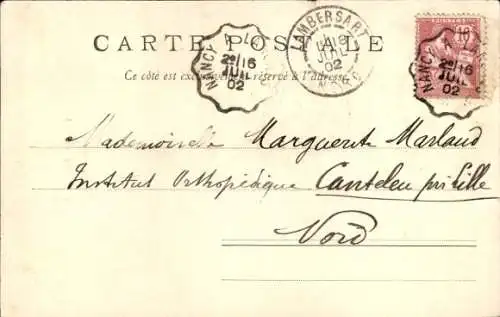 CARTE POSTALE
Ce côté est exclusivement réservé à l'adresse
NANCY A L
2e
16
JUIL
02
LAMBERSART
JUIL
02
NORD
10
NANCY
2e
16
JUIL
02
Mademoiselle Marguerite Marlaud
Institut Orthopédique Canteleu près Lille
Nord